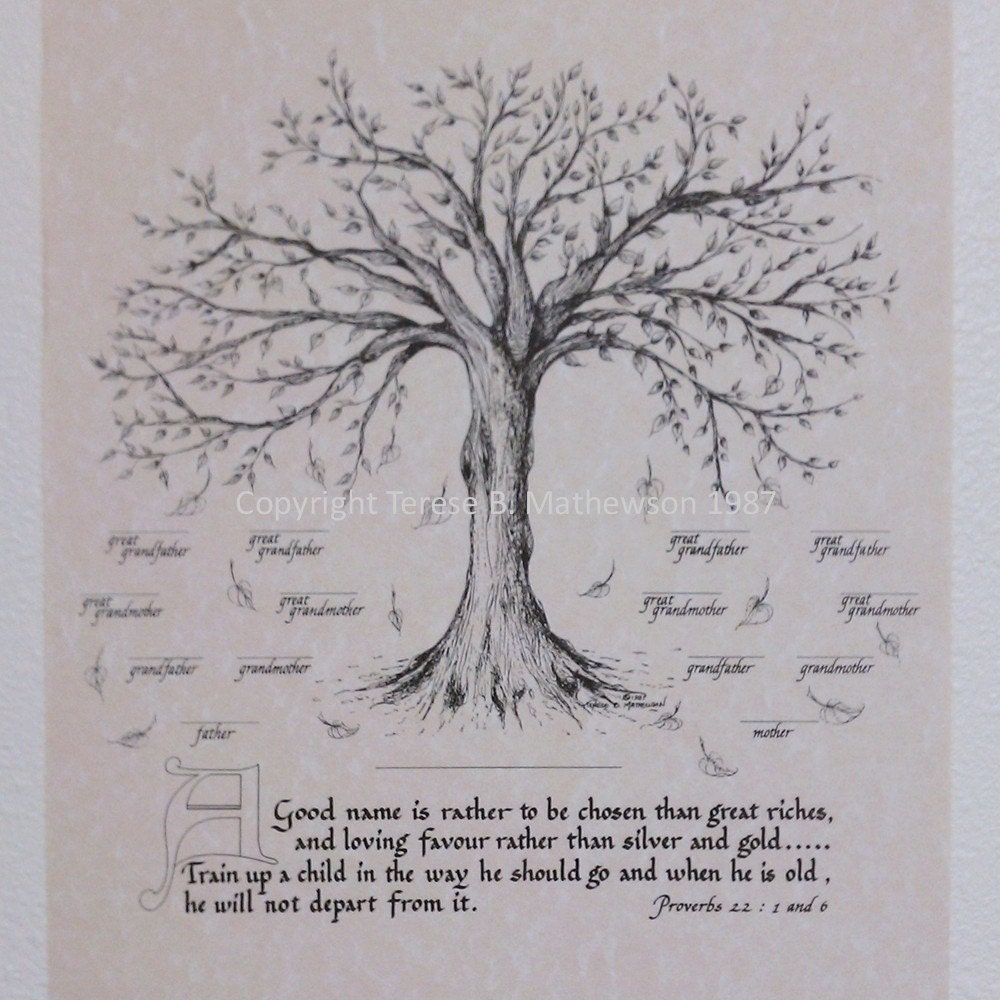 Copyright Terese B. Mathewson 1987
great great great great
grandfather grandfather grandfather grandfather
great great great great
grandmother grandmother grandmother grandmother
grandfather grandmother grandfather grandmother
© 1987
Terese B. Mathewson
father mother
A Good name is rather to be chosen than great riches,
and loving favour rather than silver and gold.....
Train up a child in the way he should go and when he is old,
he will not depart from it.
Proverbs 22 : 1 and 6